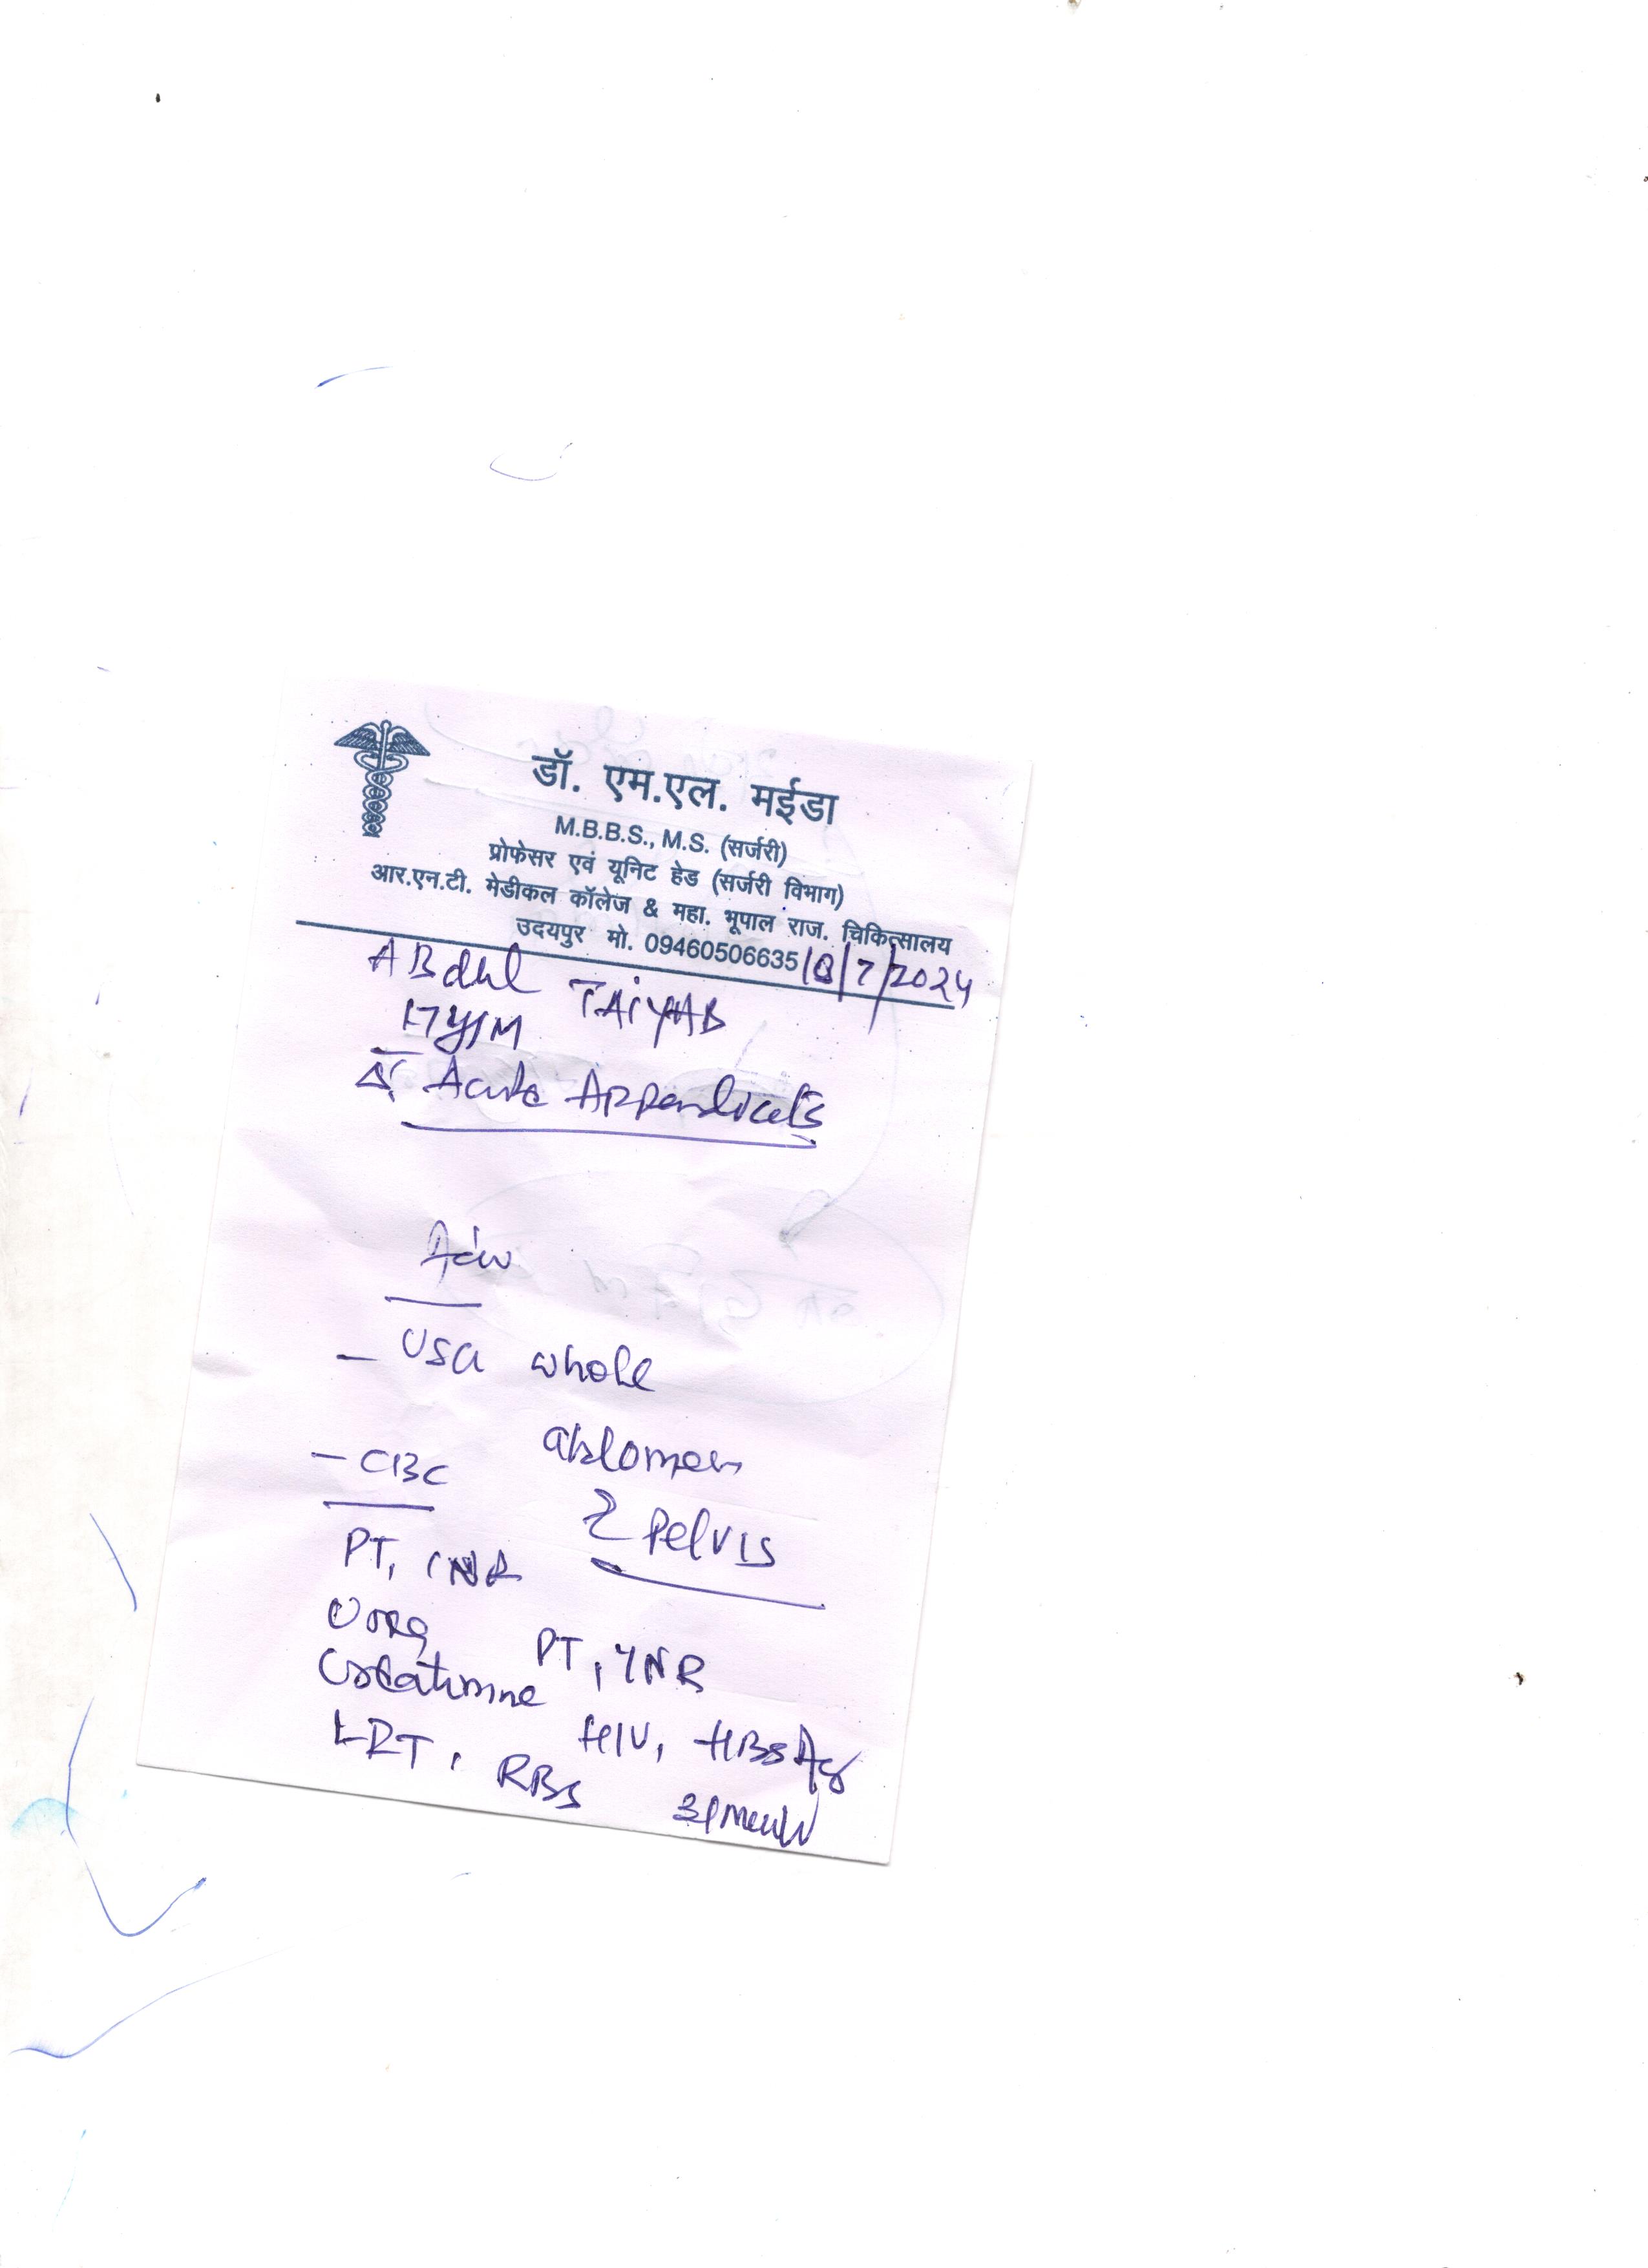 डॉ. एम.एल. मईडा
M.B.B.S., M.S. (सर्जरी)
प्रोफेसर एवं यूनिट हेड (सर्जरी विभाग)
आर.एन.टी. मेडीकल कॉलेज & महा. भूपाल राज. चिकित्सालय
उदयपुर मो. 09460506635
18/7/2024
ABdul TAIYAB
17y/M
Δ Acute Appendicitis
Adv
- USG whole
abdomen
Pelvis
- CBC
PT, INR
Urea
Creatinine
PT, INR
LRT, RBS
HIV, HBsAg